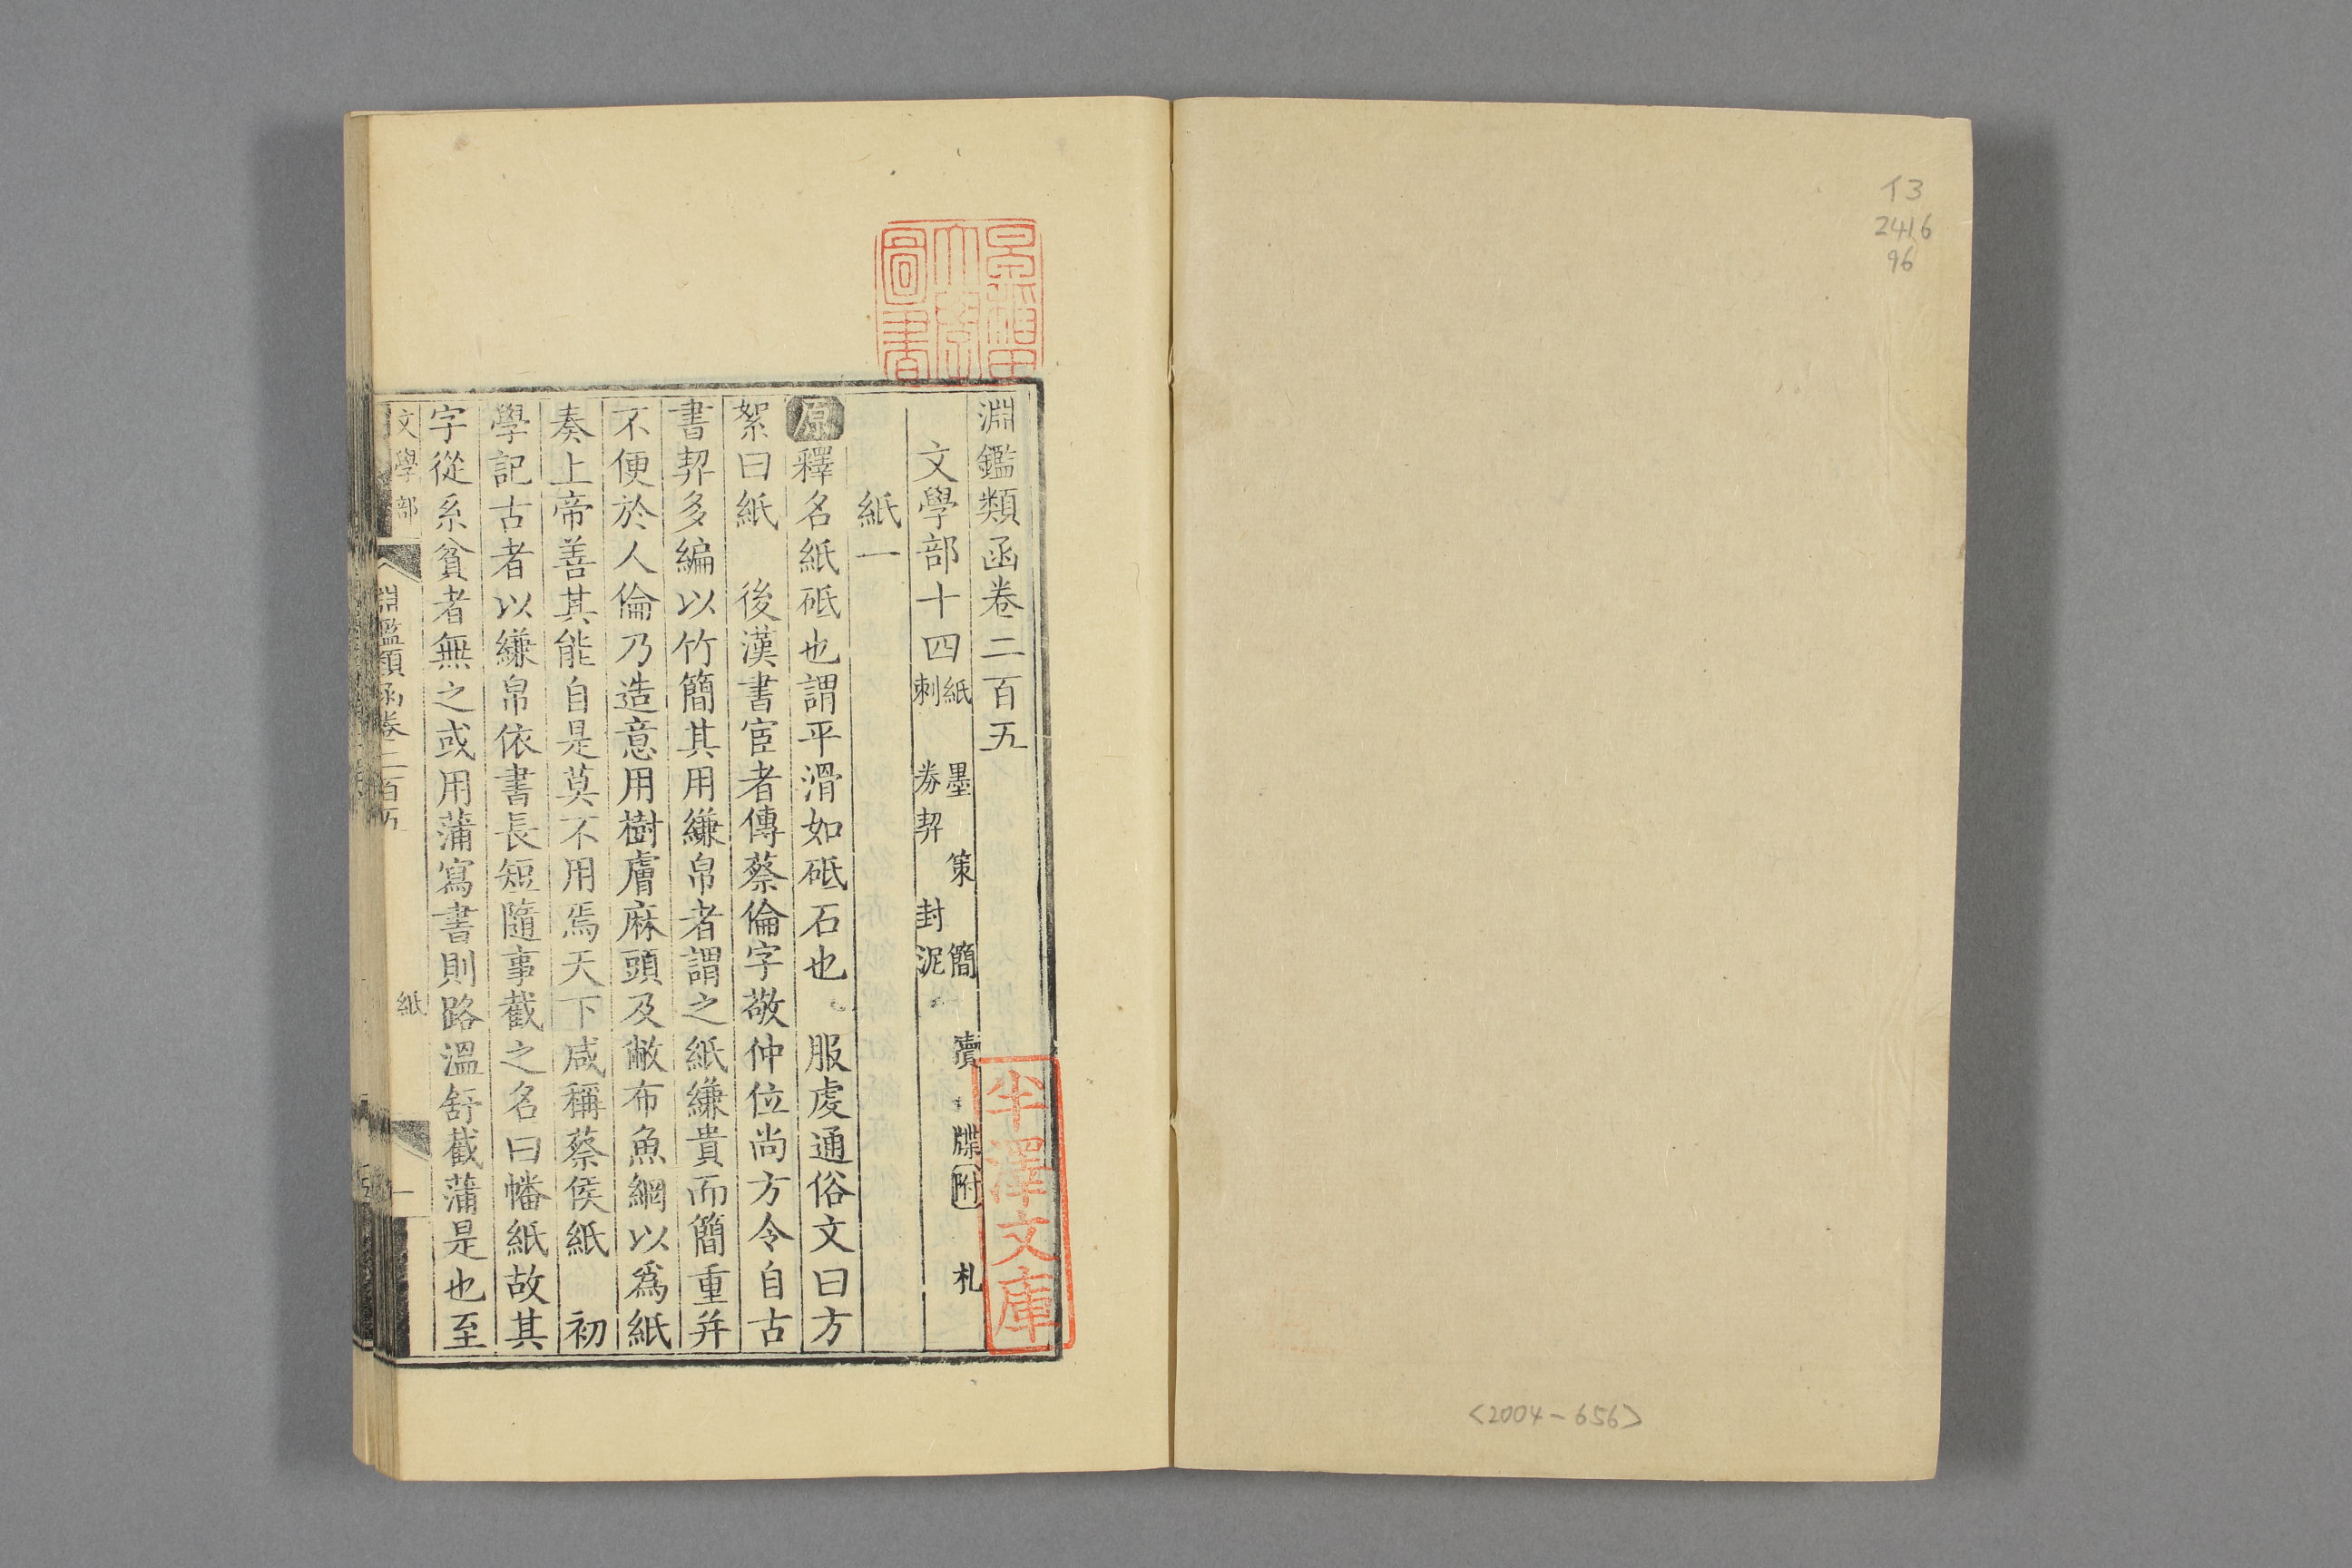 イ3
2416
96
<2004-656>
早稲田
大學
圖書
淵鑑類函卷二百五
文學部十四 紙 墨 策 簡 牘 牒附 札
刺 券契 封泥
紙一
原釋名紙砥也謂平滑如砥石也 服虔通俗文曰方
絮曰紙 後漢書宦者傳蔡倫字敬仲位尚方令自古
書契多編以竹簡其用縑帛者謂之紙縑貴而簡重并
不便於人倫乃造意用樹膚麻頭及敝布魚網以爲紙
奏上帝善其能自是莫不用焉天下咸稱蔡侯紙 初
學記古者以縑帛依書長短隨事截之名曰幡紙故其
字從糸貧者無之或用蒲寫書則路溫舒截蒲是也至
文學部 淵鑑類函卷二百五 紙 一
半澤文庫